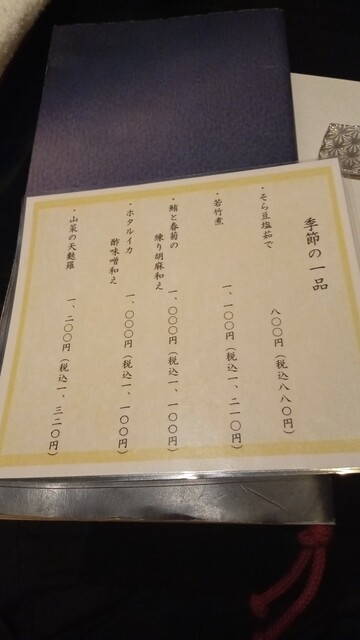 季節の一品
・そら豆塩茹で 八〇〇円（税込八八〇円）
・若竹煮 一、一〇〇円（税込一、二一〇円）
・鮪と春菊の
練り胡麻和え 一、〇〇〇円（税込一、一〇〇円）
・ホタルイカ
酢味噌和え 一、〇〇〇円（税込一、一〇〇円）
・山菜の天麩羅 一、二〇〇円（税込一、三二〇円）